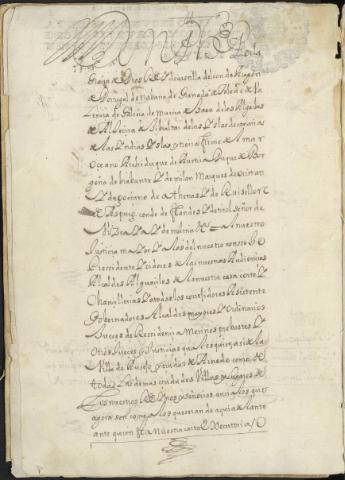 Don Phelipe Por la
graçia de Dios Rey de castilla de leon de Aragon
de Portugal de Nabarra de Granada de Toledo de Va
lençia de Galiçia de de los Algarbes
de Algeçira de Gibraltar de las yslas de canarias
de las Yndias yslas y tierra firme del mar
Oçeano Archiduque de Austria Duque de Bor
goña de brabante y de milan Marques de oristan
y de goçiano de Athenas y de Ruisellon
conde de flandes y de tirol señor de
Vizcaya y de molina A nuestro
Justiçia mayor y a los del nuestro consejo
Pressidente y oidores de las nuestras Audiençias
Alcaldes Alguaçiles de la nuestra casa corte y
Chançillerias y a todos los corregidores Asistente
Gobernadores Alcaldes mayores y ordinarios
Jueçes de Residençia merinos prebostes y
otros jueçes y justiçias qualesquier asi de la
Villa de
todas las demas çiudades Villas y lugares de
los nuestros Reynos y señorios ansi a los que
agora son como a los que seran de aqui adelante
ante quien esta nuestra carta executoria